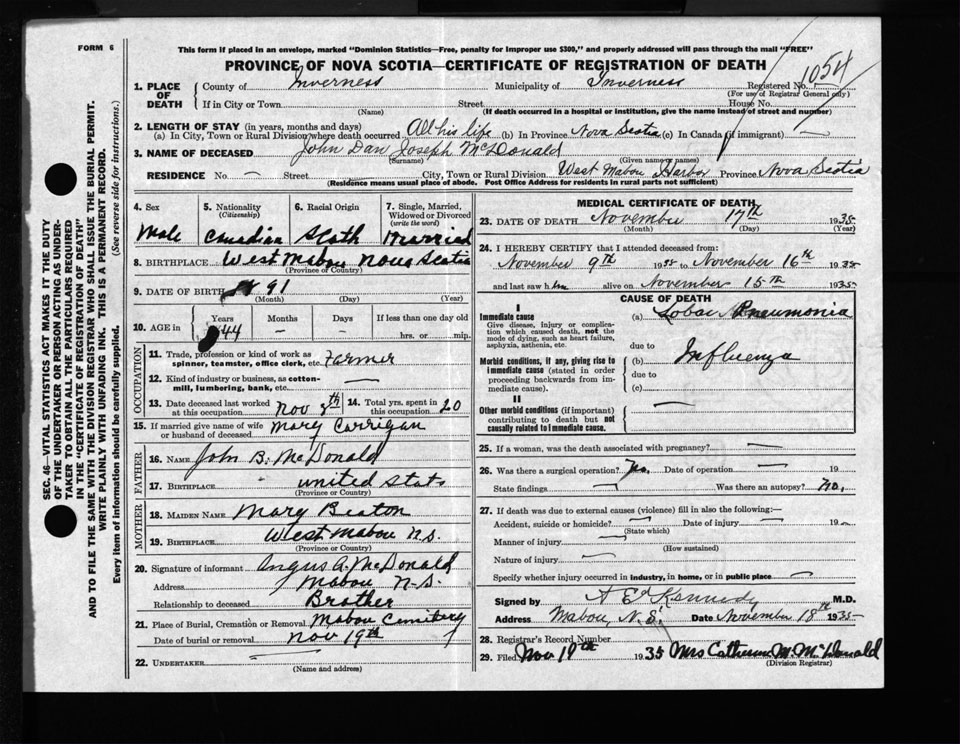 FORM 6
This form if placed in an envelope, marked "Dominion Statistics—Free, penalty for improper use $300," and properly addressed will pass through the mail "FREE"
PROVINCE OF NOVA SCOTIA—CERTIFICATE OF REGISTRATION OF DEATH
1054
1. PLACE OF DEATH
County of Inverness Municipality of Inverness Registered No.
(For use of Registrar General only)
If in City or Town Street House No.
(Name) (If death occurred in a hospital or institution, give the name instead of street and number)
2. LENGTH OF STAY (in years, months and days)
(a) In City, Town or Rural Division where death occurred All his life (b) In Province Nova Scotia (c) In Canada (if immigrant) —
3. NAME OF DECEASED John Dan Joseph McDonald
(Surname) (Given name or names)
RESIDENCE No. — Street City, Town or Rural Division West Mabou Harbor Province Nova Scotia
(Residence means usual place of abode. Post Office Address for residents in rural parts not sufficient)
4. Sex
Male
5. Nationality
(Citizenship)
Canadian
6. Racial Origin
Scoth
7. Single, Married, Widowed or Divorced
(write the word)
Married
8. BIRTHPLACE West Mabou Nova Scotia
(Province or Country)
9. DATE OF BIRTH 91
(Month) (Day) (Year)
10. AGE in
Years Months Days If less than one day old
44 — — hrs. or min.
OCCUPATION
11. Trade, profession or kind of work as spinner, teamster, office clerk, etc. Farmer
12. Kind of industry or business, as cotton-mill, lumbering, bank, etc. —
13. Date deceased last worked at this occupation Nov 8th
14. Total yrs. spent in this occupation 20
15. If married give name of wife or husband of deceased Mary Carrigan
FATHER
16. NAME John B. McDonald
17. BIRTHPLACE United Stats
(Province or Country)
MOTHER
18. MAIDEN NAME Mary Beaton
19. BIRTHPLACE West Mabou N.S.
(Province or Country)
20. Signature of informant Angus A. McDonald
Address Mabou N.S.
Relationship to deceased Brother
21. Place of Burial, Cremation or Removal Mabou Cemitery
Date of burial or removal Nov 19th
22. UNDERTAKER
(Name and address)
MEDICAL CERTIFICATE OF DEATH
23. DATE OF DEATH November 17th 1935
(Month) (Day) (Year)
24. I HEREBY CERTIFY that I attended deceased from:
November 9th 1935 to November 16th 1935
and last saw him alive on November 15th 1935
CAUSE OF DEATH
I
Immediate cause
Give disease, injury or complication which caused death, not the mode of dying, such as heart failure, asphyxia, asthenia, etc.
(a) Lobar Pneumonia
due to
Morbid conditions, if any, giving rise to immediate cause (stated in order proceeding backwards from immediate cause).
(b) Influenza
due to
(c)
II
Other morbid conditions (if important) contributing to death but not causally related to immediate cause.
—
25. If a woman, was the death associated with pregnancy? —
26. Was there a surgical operation? No. Date of operation — 19
State findings — Was there an autopsy? No.
27. If death was due to external causes (violence) fill in also the following:—
Accident, suicide or homicide? — Date of injury — 19
(State which)
Manner of injury —
(How sustained)
Nature of injury —
Specify whether injury occurred in industry, in home, or in public place —
Signed by A E Kennedy M.D.
Address Mabou, N.S. Date November 18th 1935
28. Registrar's Record Number
29. Filed Nov 19th 1935 Mrs Catherine M. McDonald
(Division Registrar)
SEC. 46—VITAL STATISTICS ACT MAKES IT THE DUTY
OF THE UNDERTAKER OR PERSON ACTING AS UNDER-
TAKER TO OBTAIN ALL THE PARTICULARS REQUIRED
IN THE "CERTIFICATE OF REGISTRATION OF DEATH"
AND TO FILE THE SAME WITH THE DIVISION REGISTRAR WHO SHALL ISSUE THE BURIAL PERMIT.
WRITE PLAINLY WITH UNFADING INK. THIS IS A PERMANENT RECORD.
Every item of information should be carefully supplied. (See reverse side for instructions.)